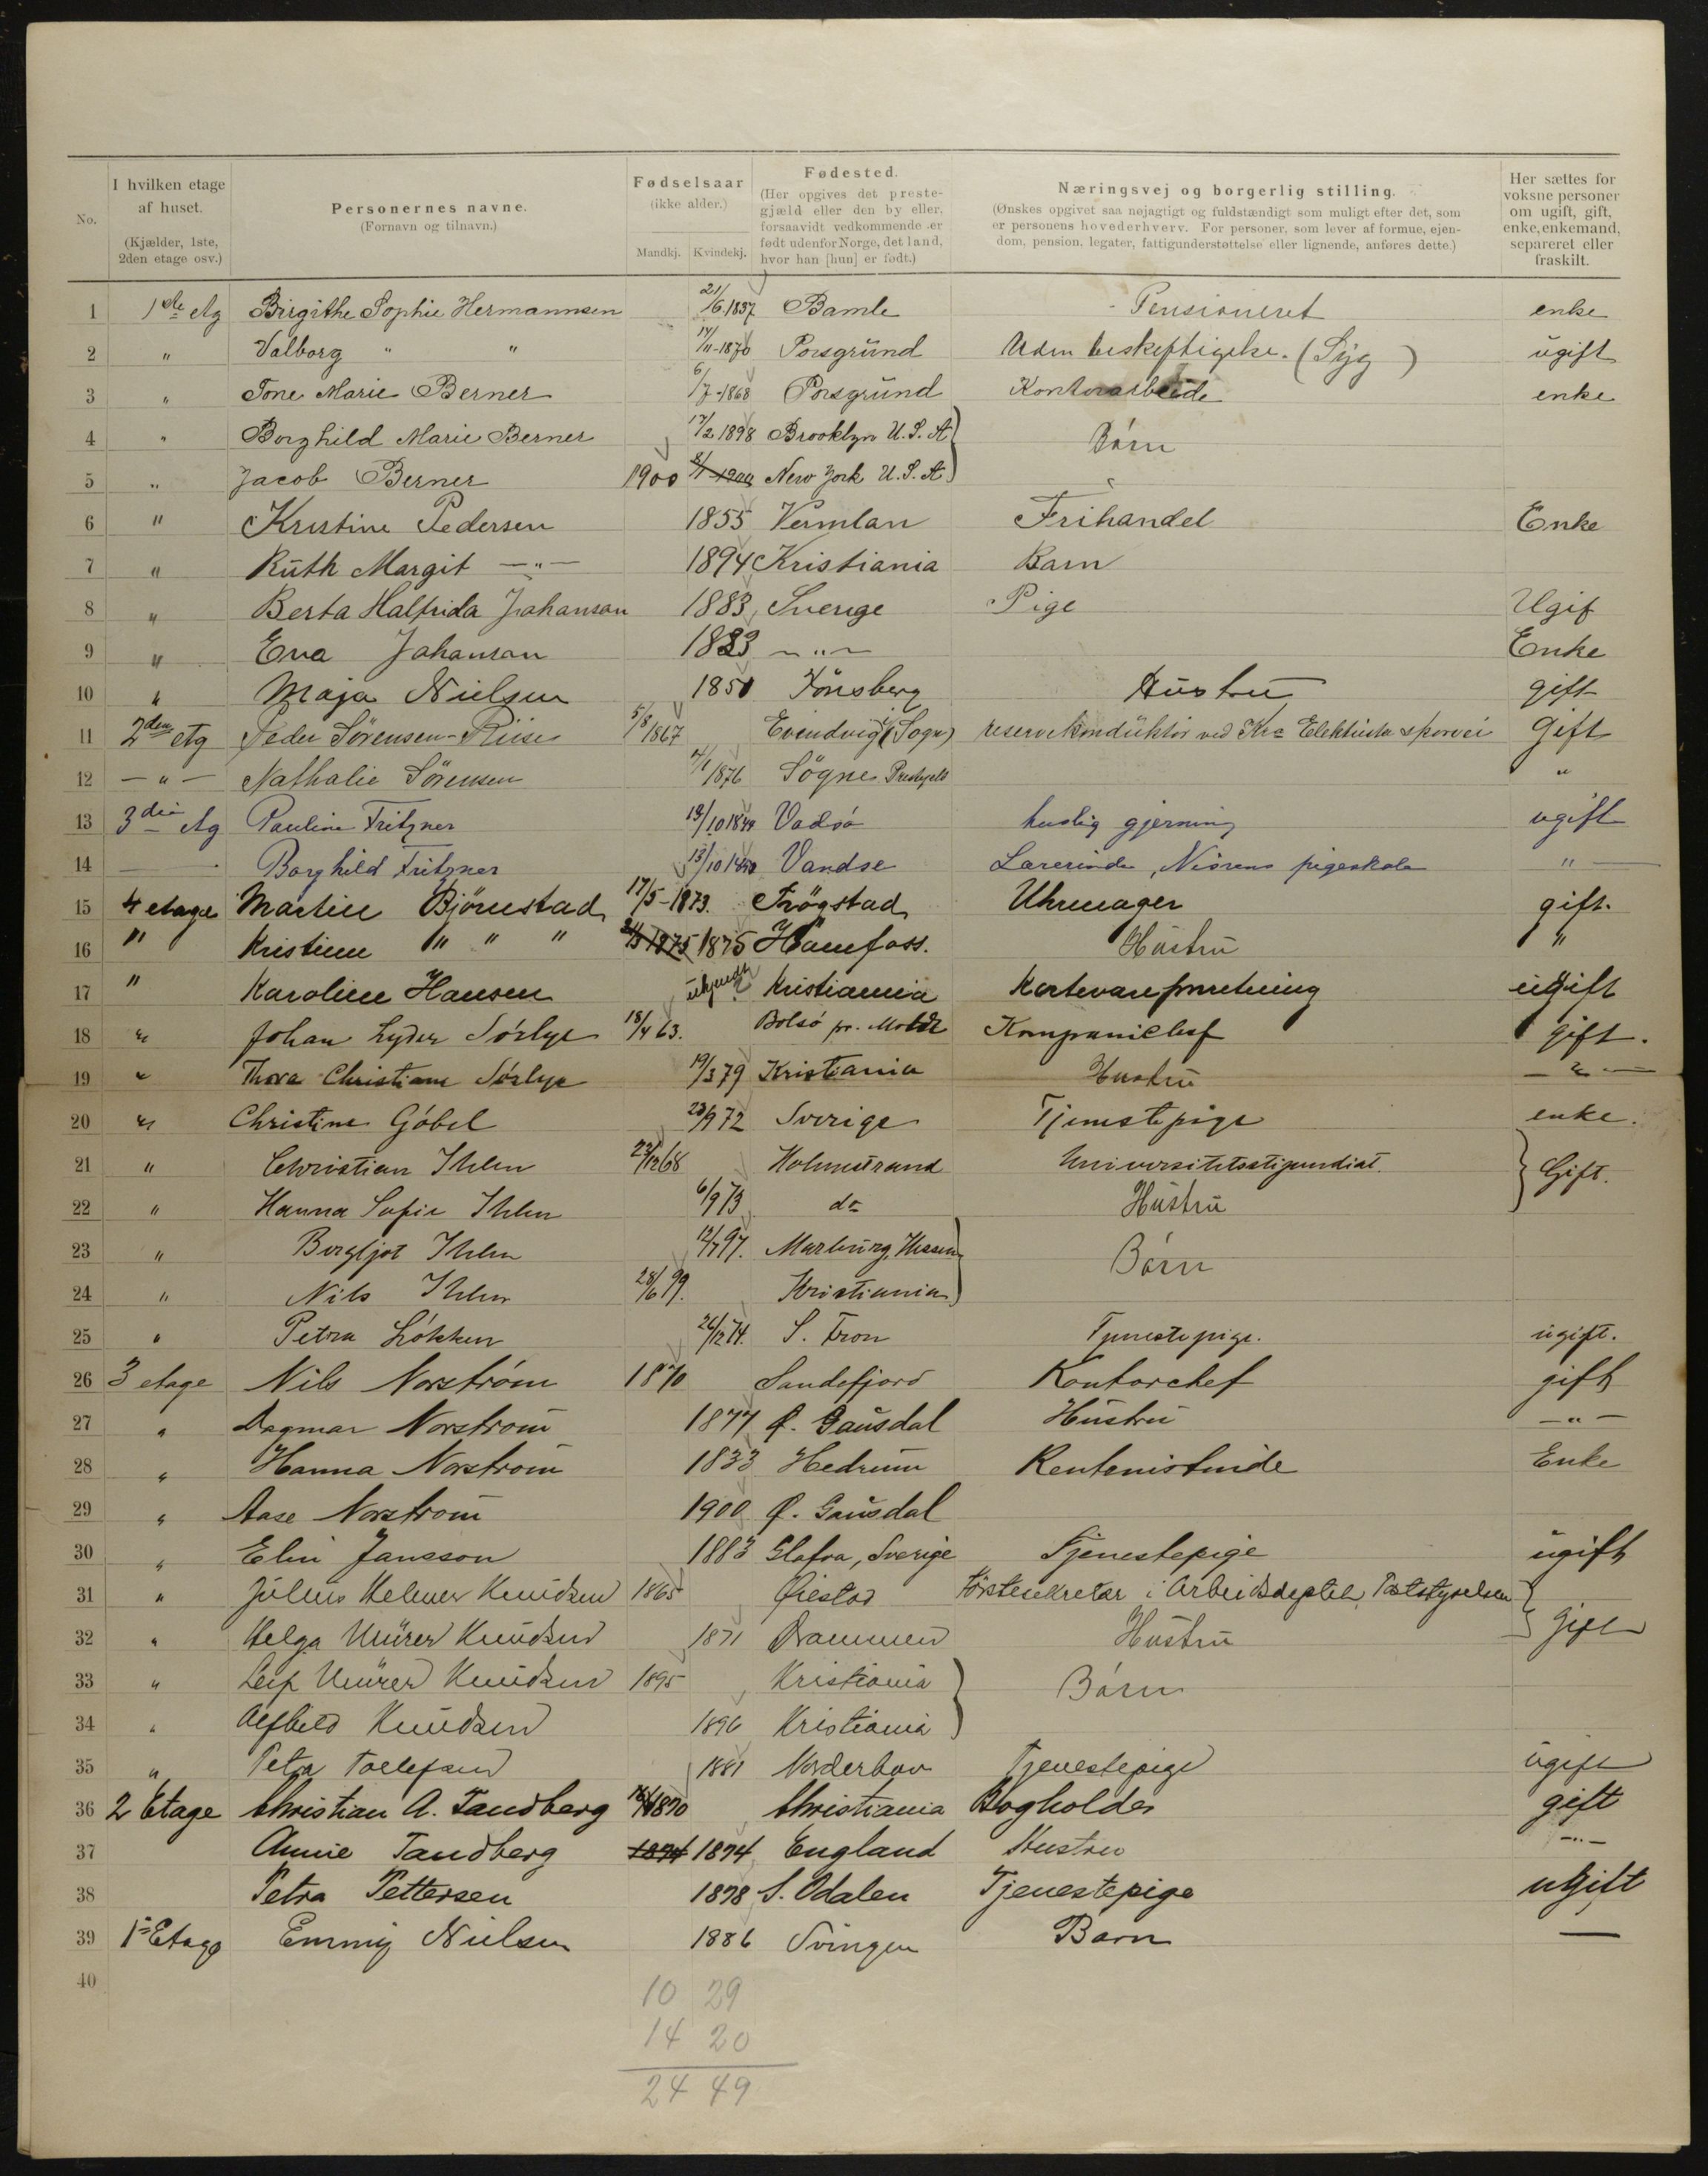 No.
I hvilken etage af huset. (Kjælder, 1ste, 2den etage osv.)
Personernes navne. (Fornavn og tilnavn.)
Fødselsaar (ikke alder.) Mandkj. Kvindekj.
Fødested. (Her opgives det prestegjæld eller den by eller, forsaavidt vedkommende er født udenfor Norge, det land, hvor han [hun] er født.)
Næringsvej og borgerlig stilling. (Ønskes opgivet saa nøjagtigt og fuldstændigt som muligt efter det, som er personens hovederhverv. For personer, som lever af formue, ejendom, pension, legater, fattigunderstøttelse eller lignende, anføres dette.)
Her sættes for voksne personer om ugift, gift, enke, enkemand, separeret eller fraskilt.
1 1ste Etg Birgithe Sophie Hermannsen 21/6 1837 Bamle Pensioneret enke
2 " Valborg " " 14/11-1870 Porsgrund Uden beskeftigelse. (Syg) ugift
3 " Tone Marie Berner 6/7-1868 Porsgrund Kontorarbeide enke
4 " Borghild Marie Berner 17/2 1898 Brooklyn U.S.A Børn
5 " Jacob Berner 1900 8/1 1900 New York U.S.A
6 " Kristine Pedersen 1855 Vermlan Frihandel Enke
7 " Ruth Margit —"— 1894 Kristiania Barn
8 " Berta Halfrida Johanson 1883 Sverige Pige Ugif
9 " Eva Johanson 1823 —"— Enke
10 " Maja Nielsen 1850 Tönsberg Hustru gift
11 2den etg Peder Sörensen-Riise 5/8 1867 Evindvig (Sogn) reservekonduktör ved Kra Elektriske sporvei Gift
12 —"— Nathalie Sörensen 4/1 1876 Sögne Prestgjeld "
13 3die Etg Pauline Fritzner 13/10 1849 Vadsø huslig gjerning ugift
14 — Borghild Fritzner 13/10 1850 Vandse Lærerinde, Nisens pigeskole " —
15 4 etage Martin Björnstad 17/5-1873. Trögstad Uhrmager gift.
16 " Kristine " " " 1875 1875 Hönefoss. Hustru "
17 " Karoline Hansen ukjendt Kristiania Kortevareforretning ugift
18 " Johan Lyder Sörlye 18/4 63. Bolsö pr. Molde Kompanichef gift.
19 " Thora Christiane Sörlye 19/3 79 Kristiania Hustru —"—
20 " Christine Göbel 23/9 72 Sverige Tjenestepige enke.
21 " Christian Ihlen 22/12 68 Holmestrand Universitetsstipendiat. Gift.
22 " Hanna Sofie Ihlen 6/9 73 do Hustru
23 " Bergljot Ihlen 12/7 97. Marburg, Hessen Børn
24 " Nils Ihlen 28/6 99. Kristiania
25 " Petra Løkken 26/12 74. S. Fron Tjenestepige. ugift.
26 3 etage Nils Norström 1870 Sandefjord Kontorchef gift
27 " Dagmar Norström 1877 Ø. Gausdal Hustru —"—
28 " Hanna Norström 1833 Hedrum Rentenistinde Enke
29 " Aase Norström 1900 Ø. Gausdal
30 " Elin Jansson 1883 Glafva, Sverige Tjenestepige ugift
31 " Julius Helmer Knudsen 1865 Øiestad Förstesekretær i Arbeidsdeptet, Poststyrelsen Gift
32 " Helga Mürer Knudsen 1871 Drammen Hustru
33 " Leif Mürer Knudsen 1895 Kristiania Børn
34 " Alfhild Knudsen 1896 Kristiania
35 " Petra Tollefsen 1881 Norderhov Tjenestepige ugift
36 2 Etage Christian A. Tandberg 1870 Christiania Bogholder gift
37 Annie Tandberg 1874 1874 England Hustru —"—
38 Petra Pettersen 1878 S. Odalen Tjenestepige ugift
39 1ste Etage Emmy Nielsen 1886 Svingen Barn —
40
10 29
14 20
24 49